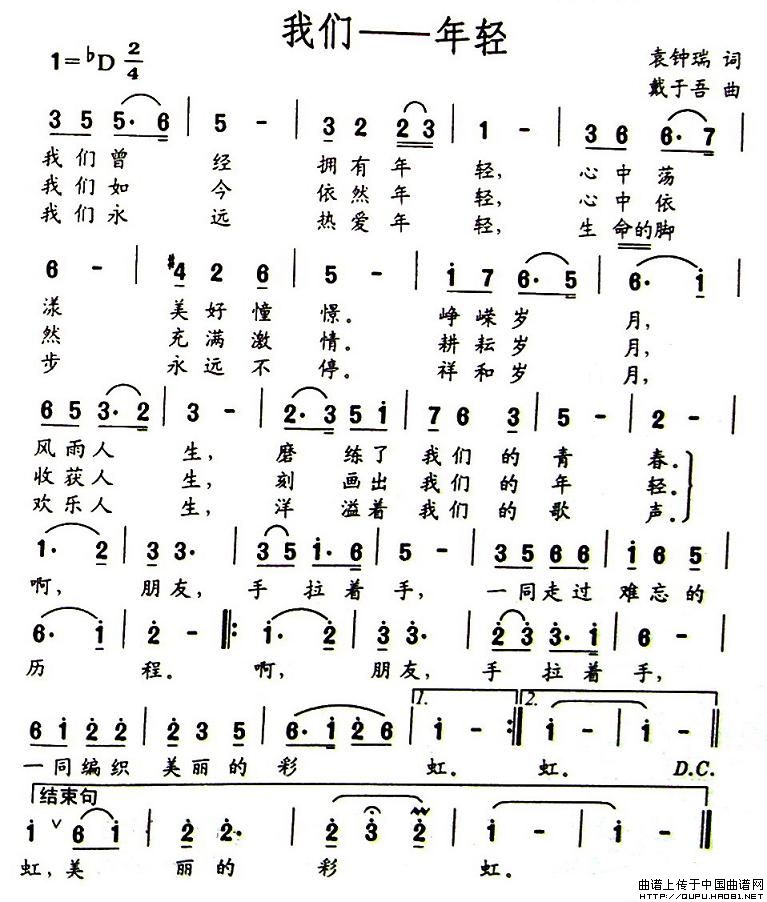 我们——年轻
1=♭D 2/4
袁钟瑞 词
戴于吾 曲
3 5 5· 6 | 5 - | 3 2 2 3 | 1 - | 3 6 6· 7 |
我们曾 经 拥有年 轻, 心中荡
我们如 今 依然年 轻, 心中依
我们永 远 热爱年 轻, 生命的脚
6 - | #4 2 6 | 5 - | i 7 6· 5 | 6· i |
漾 美好憧 憬。 峥嵘岁 月,
然 充满激 情。 耕耘岁 月,
步 永远不 停。 祥和岁 月,
6 5 3· 2 | 3 - | 2· 3 5 i | 7 6 3 | 5 - | 2 - |
风雨人 生, 磨 练了 我们的 青 春。
收获人 生, 刻 画出 我们的 年 轻。
欢乐人 生, 洋 溢着 我们的 歌 声。
1· 2 | 3 3· | 3 5 i· 6 | 5 - | 3 5 6 6 | i 6 5 |
啊, 朋友, 手 拉着 手, 一同走过 难忘的
6· i | 2 - |: i· 2 | 3 3· | 2 3 3· i | 6 - |
历 程。 啊, 朋友, 手 拉着 手,
1. 2.
6 i 2 2 | 2 3 5 | 6· i 2 6 | i - :| i - | i - |
一同编织 美丽的 彩 虹。 虹。 D.C.
结束句
i ∨ 6 i | 2 2· | 2 3 2 | i - | i - ||
虹, 美 丽的 彩 虹。
曲谱上传于中国曲谱网
HTTP://QUPU.HAO81.NET